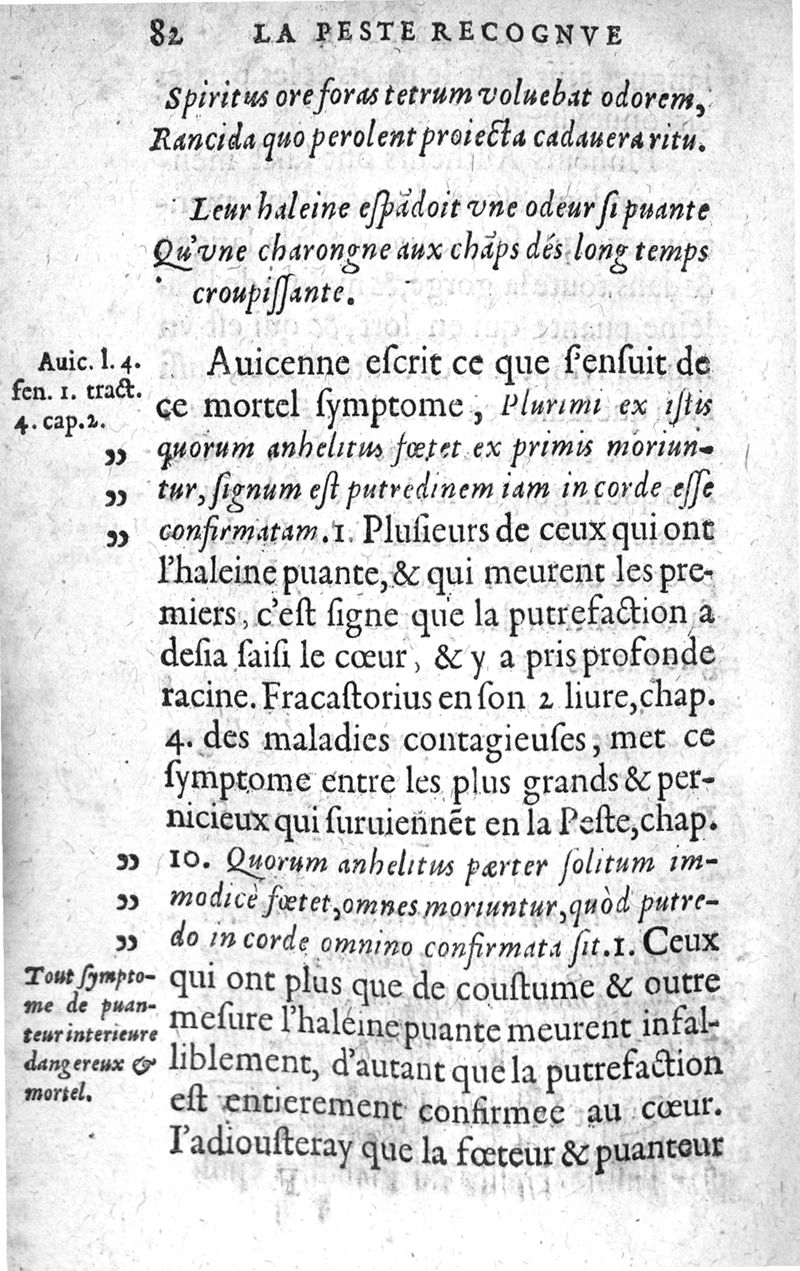 82 LA PESTE RECOGNVE
Spiritus ore foras tetrum voluebat odorem,
Rancida quo perolent proiecta cadauera ritu.
Leur haleine eſpãdoit vne odeur ſi puante
Qu'vne charongne aux chãps dés long temps
croupiſſante.
Auic. l. 4.
fen. 1. tract.
4. cap. 2.
Auicenne eſcrit ce que ſ'enſuit de
ce mortel ſymptome, Plurimi ex iſtis
„ quorum anhelitus fœtet ex primis moriun-
„ tur, ſignum eſt putredinem iam in corde eſſe
„ confirmatam. 1. Pluſieurs de ceux qui ont
l'haleine puante, & qui meurent les pre-
miers, c'eſt ſigne que la putrefaction a
deſia ſaiſi le cœur, & y a pris profonde
racine. Fracaſtorius en ſon 2 liure, chap.
4. des maladies contagieuſes, met ce
ſymptome entre les plus grands & per-
nicieux qui ſuruiennẽt en la Peſte, chap.
„ 10. Quorum anhelitus pærter ſolitum im-
„ modicè fœtet, omnes moriuntur, quòd putre-
„ do in corde omnino confirmata ſit. 1. Ceux
Tout ſympto-
me de puan-
teur interieure
dangereux &
mortel.
qui ont plus que de couſtume & outre
meſure l'haleine puante meurent infal-
liblement, d'autant que la putrefaction
eſt entierement confirmee au cœur.
I'adiouſteray que la fœteur & puanteur